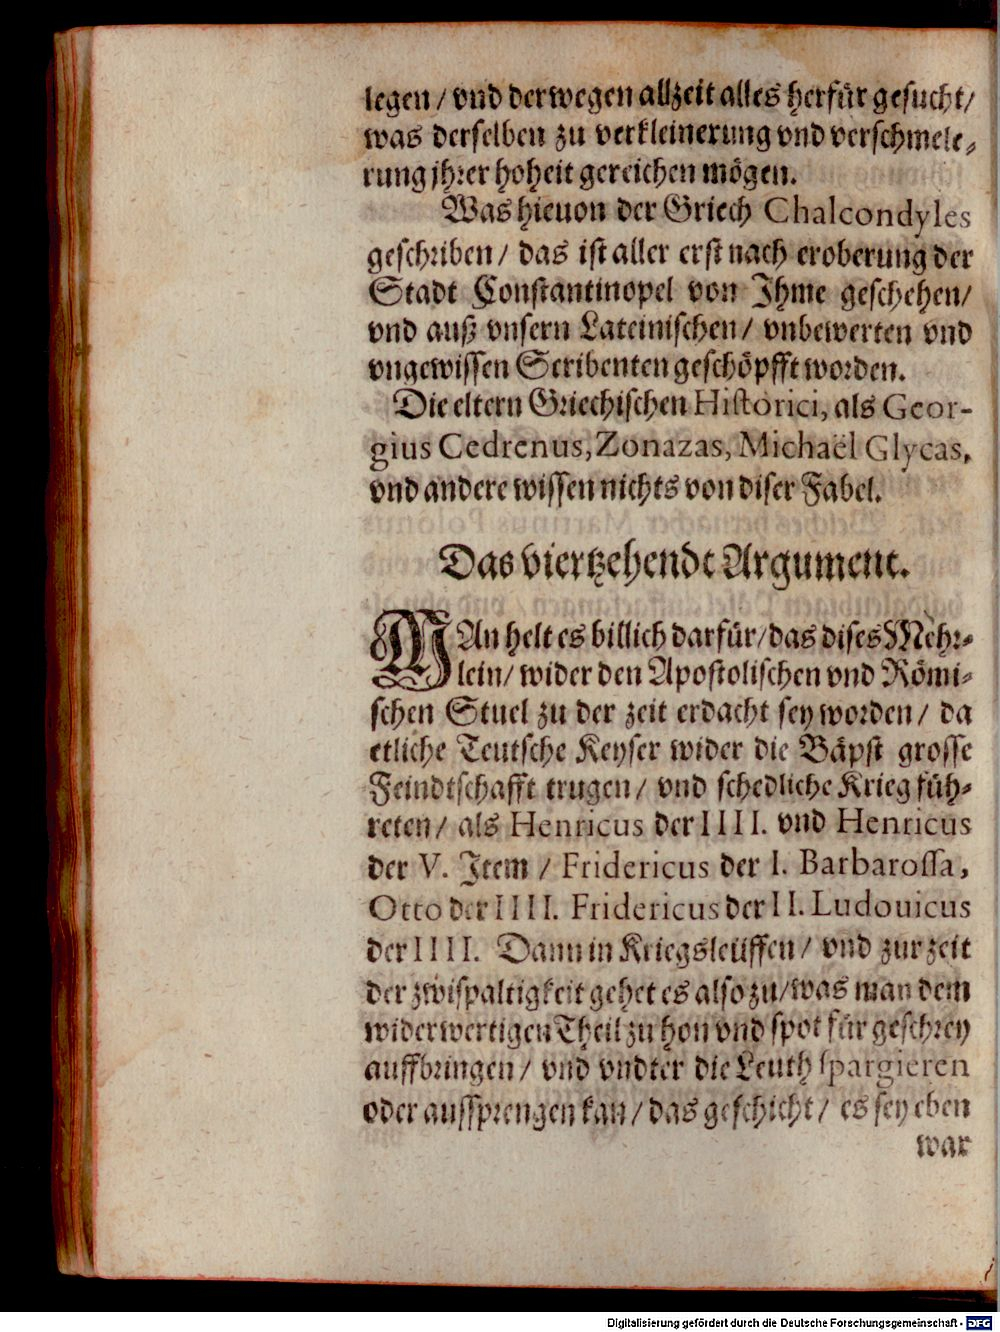 legen / vnd derwegen allzeit alles herfür gesucht /
was derselben zu verkleinerung vnd verschmele-
rung jhrer hoheit gereichen mögen.
Was hieuon der Griech Chalcondyles
geschriben / das ist aller erst nach eroberung der
Stadt Constantinopel von Ihme geschehen /
vnd auß vnsern Lateinischen / vnbewerten vnd
vngewissen Scribenten geschöpfft worden.
Die eltern Griechischen Historici, als Geor-
gius Cedrenus, Zonazas, Michaël Glycas,
vnd andere wissen nichts von diser Fabel.
Das viertzehendt Argument.
MAn helt es billich darfür / das dises Mehr-
lein / wider den Apostolischen vnd Römi-
schen Stuel zu der zeit erdacht sey worden / da
etliche Teutsche Keyser wider die Bäpst grosse
Feindtschafft trugen / vnd schedliche Krieg füh-
reten / als Henricus der IIII. vnd Henricus
der V. Item / Fridericus der I. Barbarossa,
Otto der IIII. Fridericus der II. Ludouicus
der IIII. Dann in Kriegsleüffen / vnd zur zeit
der zwispaltigkeit gehet es also zu / was man dem
widerwertigen Theil zu hon vnd spot für geschrey
auffbringen / vnd vndter die Leuth spargieren
oder aussprengen kan / das geschicht / es sey eben
war
Digitalisierung gefördert durch die Deutsche Forschungsgemeinschaft - DFG